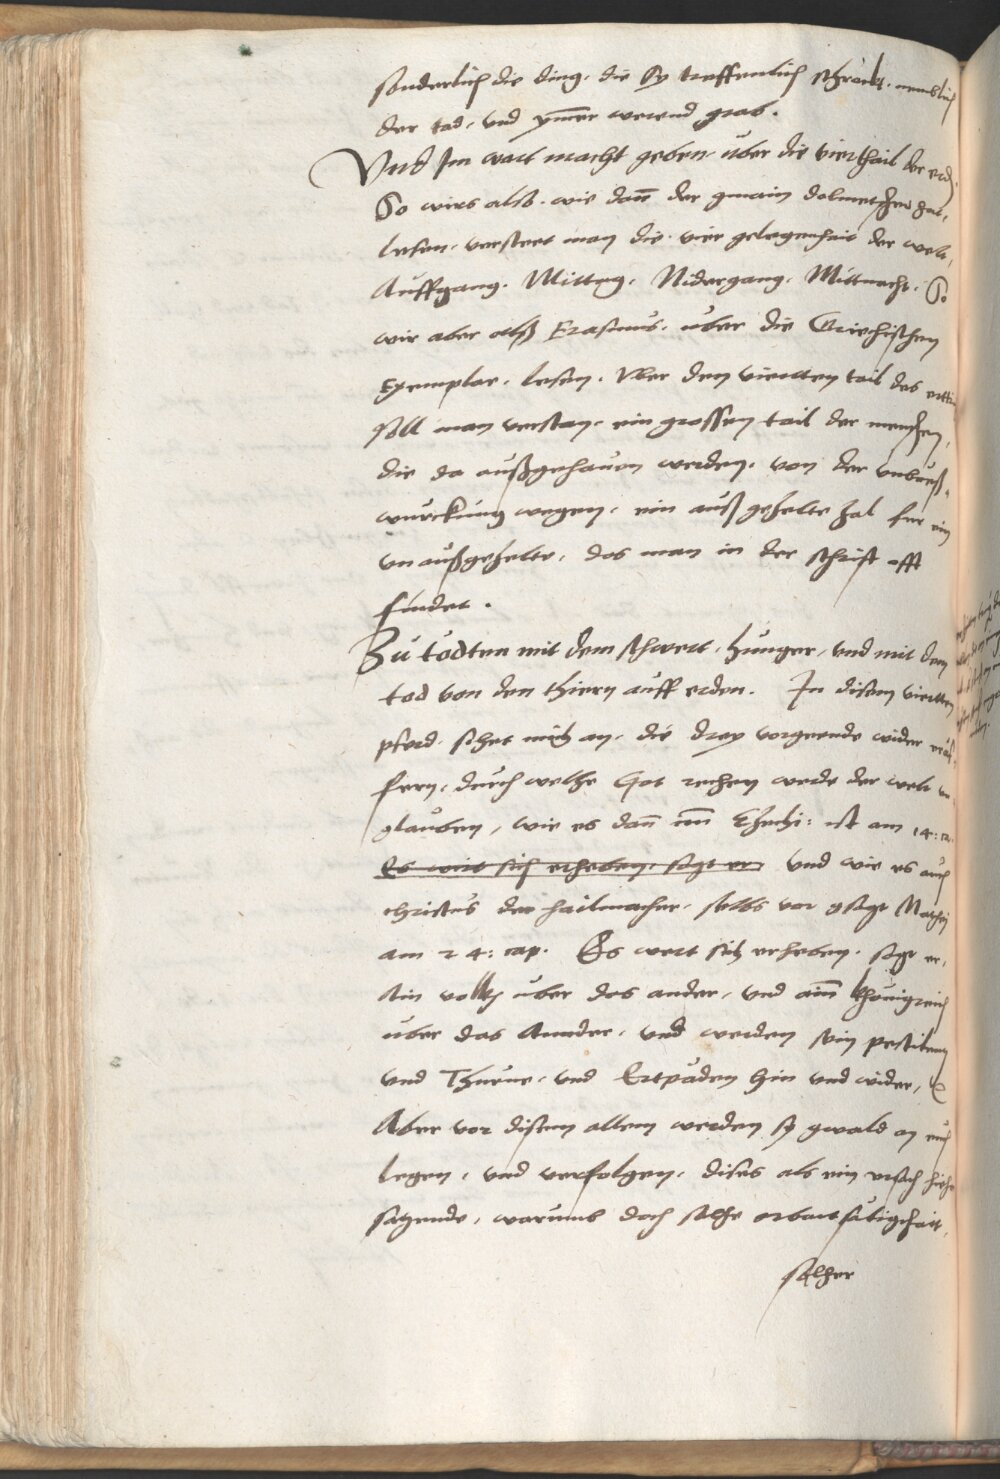 sonderlich die ding, die sy treffenlich schräckt, nemblich
der tod, und ymer werend grab.
Und Im ward macht geben, über die vierthail der erd,
So wirs also, wie dan̄ der gmain dolmetscher hat,
lesen, versteet man die vier gelegenhait der welt,
Auffgang, Mittag, Nidergang, Mittnacht. So
wir aber alß Erasmus, über die Griechischen
Exemplar, lesen, Uber den viertten tail des
soll man verstan, ein grossen tail der menschen,
die da außgehauen werden, von der
würckung wegen, ein auß gezelte zal fur ein
un außgezelte, das man in der schrift offt
findet.
Zu tödten mit dem schwert, hunger, und mit dem
tod von den thiern auff erden. In disem viertten
pferd, sihet mich an, die drey vorgeende wider
fern, durch welche Got rechen werde der welt un
glauben, wie es dan̄ im Ezechi: ist am 14: ca.
Es wirt sich erheben, sagt er und wie es auch
christus der hailmacher, selbs vor gsagt Mathei
am 24: cap. Es wert sich erheben, sagt er,
Ain volkh über das ander, und ain khönigreich
über das Annder, und werden sein pestilentz
und Theure, und Ertpiden hin und wider,
Aber vor disem allem werden sy gwald an euch
legen, und verfolgen, dises als ein ursach hieher
setzende, warumb doch solche arbaitsäligkhait,
solher